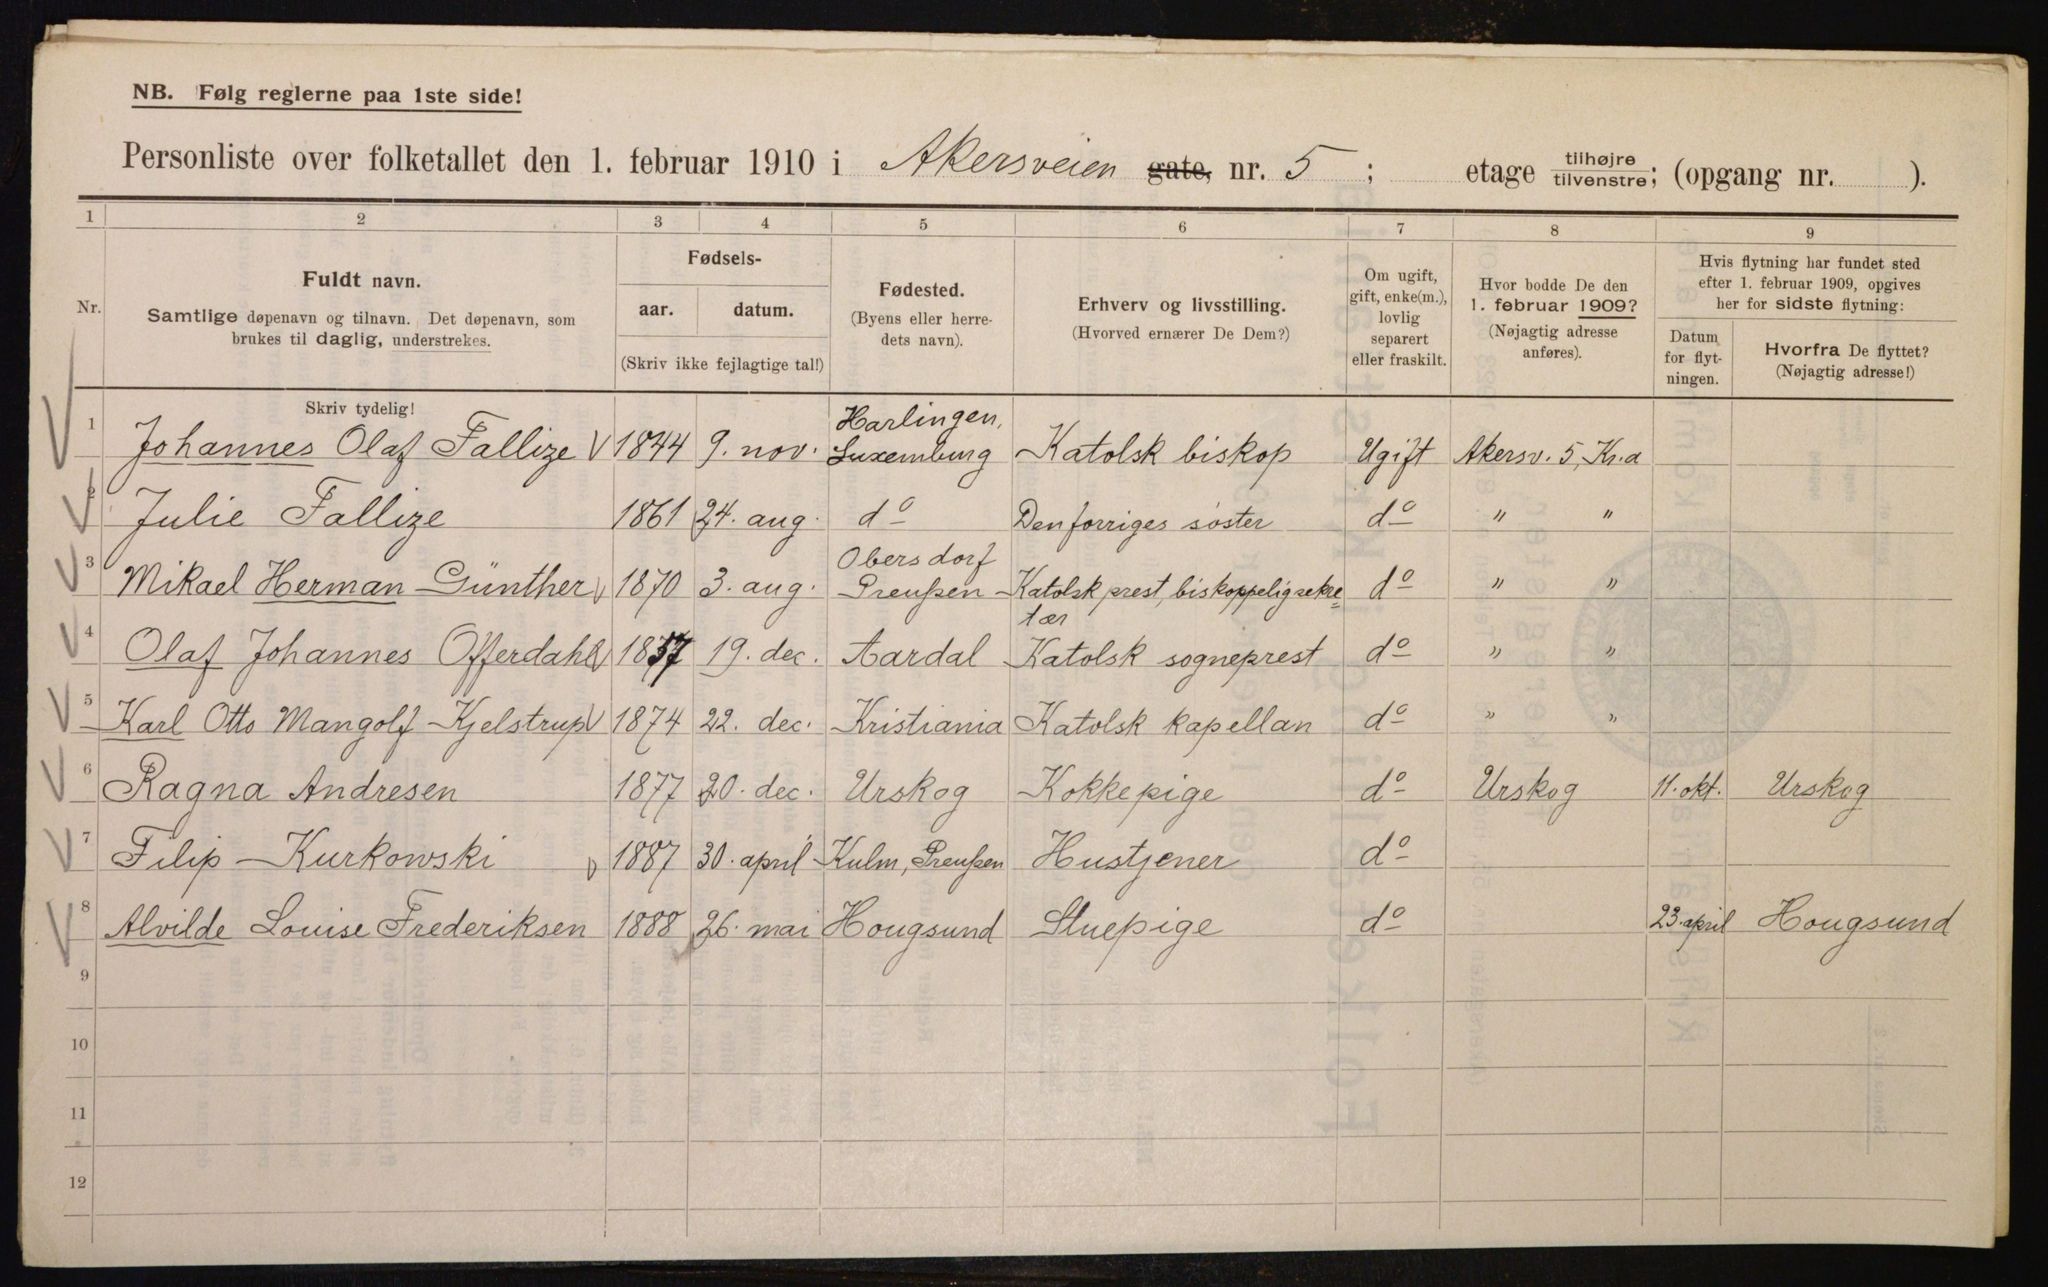 NB. Følg reglerne paa 1ste side!
Personliste over folketallet den 1. februar 1910 i Akersveien gate, nr. 5 ; etage tilhøjre/tilvenstre; (opgang nr. ).
1 2 3 4 5 6 7 8 9
Nr.
Fuldt navn.
Samtlige døpenavn og tilnavn. Det døpenavn, som
brukes til daglig, understrekes.
Fødsels-
aar. datum.
(Skriv ikke fejlagtige tal!)
Fødested.
(Byens eller herre-
dets navn).
Erhverv og livsstilling.
(Hvorved ernærer De Dem?)
Om ugift,
gift, enke(m.),
lovlig
separert
eller fraskilt.
Hvor bodde De den
1. februar 1909?
(Nøjagtig adresse
anføres).
Hvis flytning har fundet sted
efter 1. februar 1909, opgives
her for sidste flytning:
Datum
for flyt-
ningen.
Hvorfra De flyttet?
(Nøjagtig adresse!)
Skriv tydelig!
1 Johannes Olaf Fallize 1844 9. nov. Harlingen, Luxemburg Katolsk biskop Ugift Akersv. 5, Kr.a
2 Julie Fallize 1861 24. aug. do Den forriges søster do " "
3 Mikael Herman Günther 1870 3. aug. Obersdorf Preußen Katolsk prest, biskoppelig sekre=
tær do " "
4 Olaf Johannes Offerdahl 1857 19. dec. Aardal Katolsk sogneprest do " "
5 Karl Otto Mangolf Kjelstrup 1874 22. dec. Kristiania Katolsk kapellan do " "
6 Ragna Andresen 1877 20. dec. Urskog Kokkepige do Urskog 11. okt. Urskog
7 Filip Kurkowski 1887 30. april Kulm, Preußen Hustjener do
8 Alvilde Louise Frederiksen 1888 26. mai Hougsund Stuepige do 23. april Hougsund
9
10
11
12